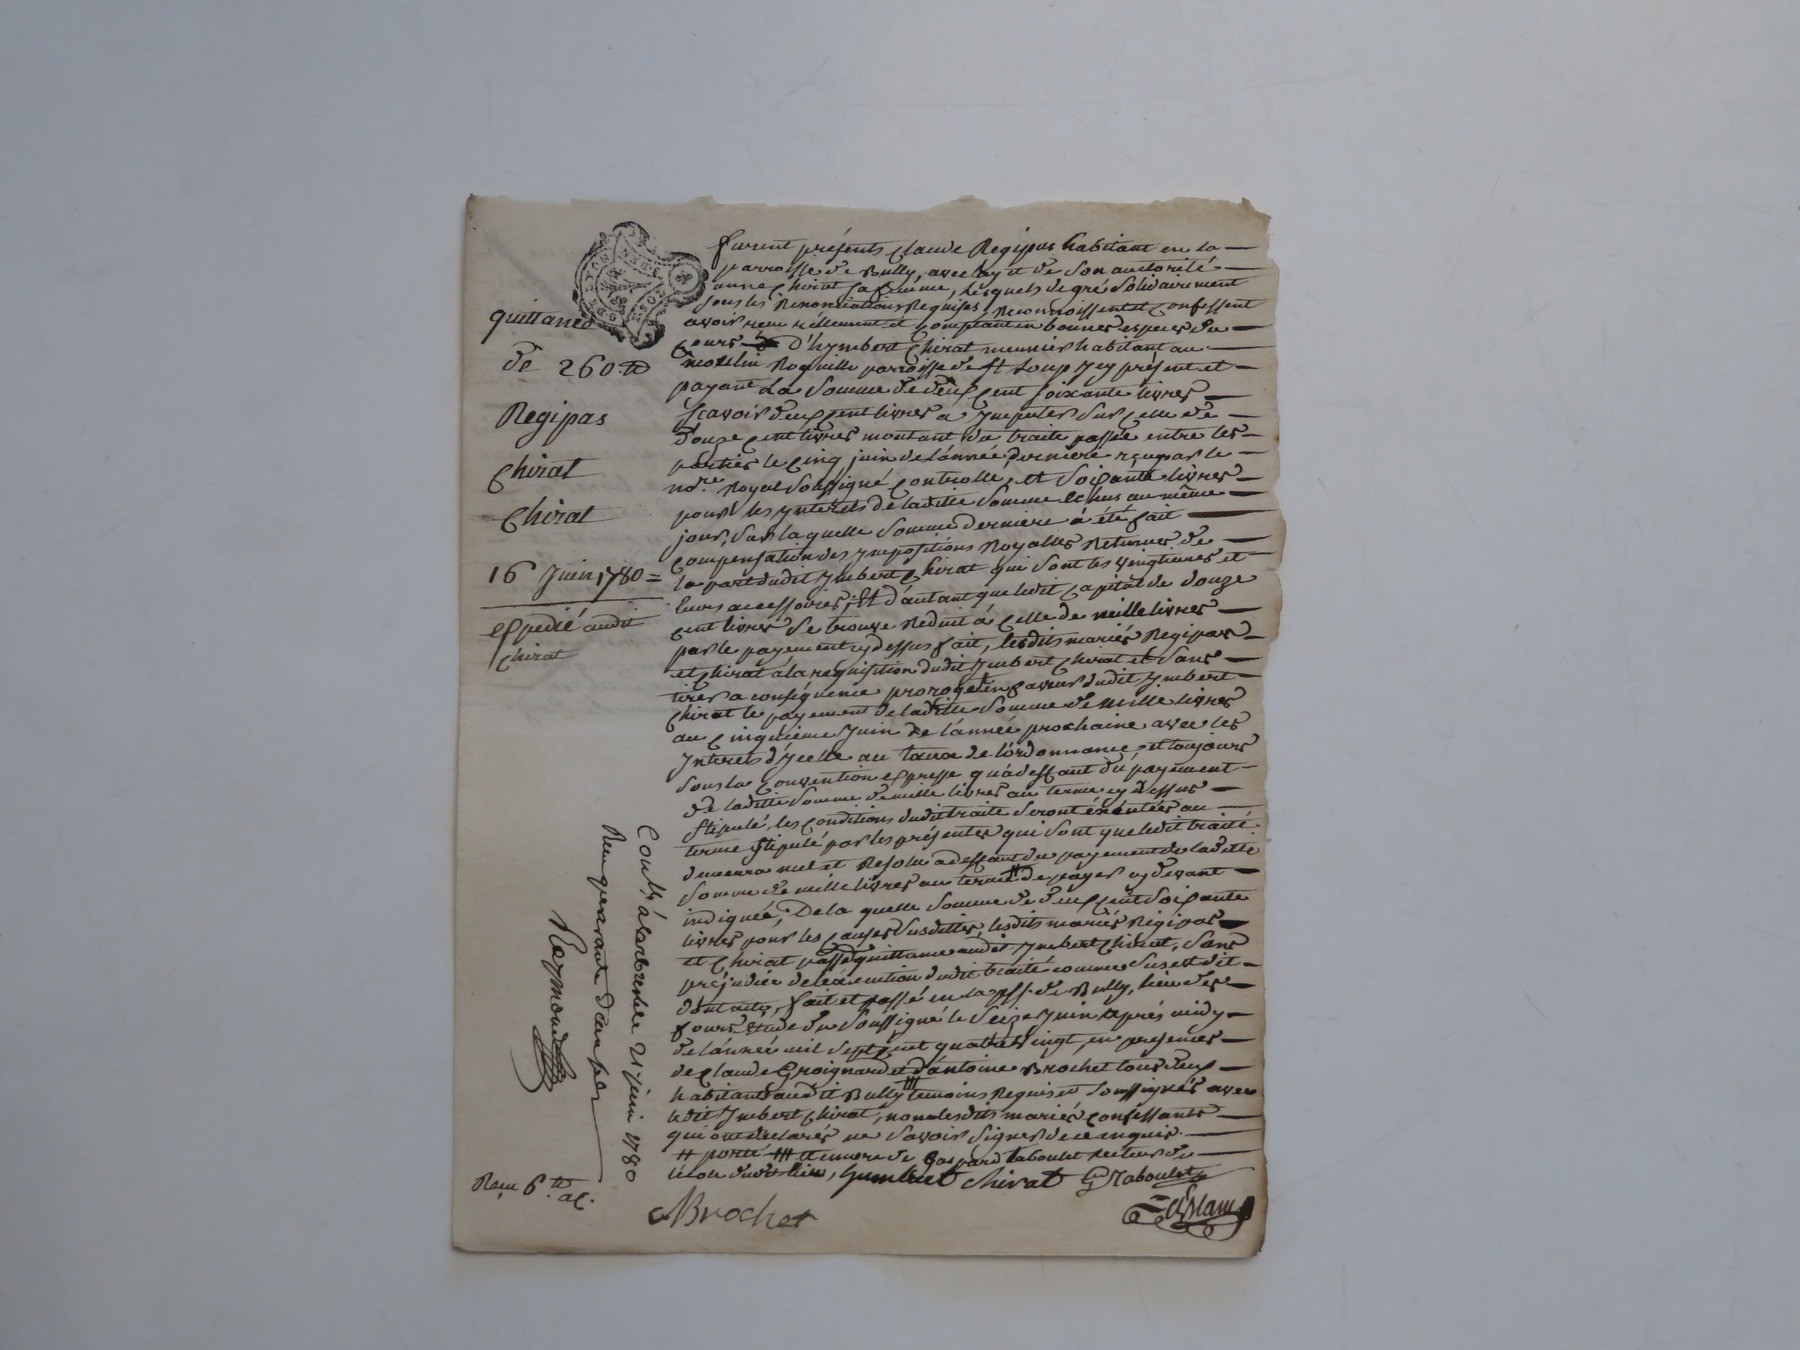 quittance
de 260 ₶
Regipas
Chirat
Chirat
16 Juin 1780 =
expedié audit
Chirat
furent présents Claude Regipas habitant en la
parroisse de Bully, avec luy et de son auctorité
anne Chirat sa femme, lesquels de gré solidairement
sous les Renonciations Requises, Reconnoissent et Confessent
avoir reçu réellement et comptant en bonnes especes de
cours d'hymbert Chirat meunier habitant au
moulin Roquille parroisse de St Loup Icy présent et
payant La somme de deux cent soixante livres
sçavoir deux cent livres a Imputer sur celle de
douze cent livres montant du traité passé entre les
parties le cinq juin de lannée derniere reçu par le
nore Royal soussigné controllé, et soixante livres
pour les Interets de laditte somme échus au même
jour, sur laquelle somme derniere à été fait
compensation des Impositions Royalles Retenues de
la part dudit Imbert Chirat qui sont les vingtiemes et
leurs accessoires; Et d'autant que ledit Capital de douze
cent livres se trouve Reduit à Celle de mille livres
par le payement cy dessus fait, lesdits mariés Regipas
et Chirat a la requisition dudit Imbert Chirat et sans
tirer a conséquence prorogent en faveur dudit Imbert
Chirat le payement de laditte somme de mille livres
au cinquieme Juin de lannée prochaine avec les
Interets d'Icelle au taux de l'ordonnance, et toujours
sous la Convention expresse qu'adeffaut du payement
de laditte somme de mille livres au terme cy dessus
stipulé, les conditions dudit traité seront éxécutées au
terme stipulé par les présentes qui sont que ledit traité
demeura nul et Resolu adeffaut du payement de laditte
somme de mille livres au terme # de payer cy devant
indiquée; De la quelle somme de deux cent soixante
livres pour les causes susdittes, lesdits mariés Régipas
et Chirat passe quittance audit Imbert Chirat, sans
préjudice de léxécution dudit traité comme sus est dit
dont acte, fait et passé en la psse de Bully, lieu des
fours étude du soussigné le seize Juin après midy
de lannée mil sept cent quatre vingt, en presences
de Claude Groignard et d'antoine Brochet tous deux
habitants audit Bully temoins Requis et soussignés avec
ledit Imbert Chirat, non lesdits mariés confessants
qui ont déclarés ne savoir signer de ce enquis
# porté ### encore de Gaspard taboulet recteur de
lécole dudit lieu, humbert Chirat G Taboulet
Brochet
Conllé à Larbresle 21 juin 1780
Reçu quarante deux sols
Raymond
Reçu 6 ₶